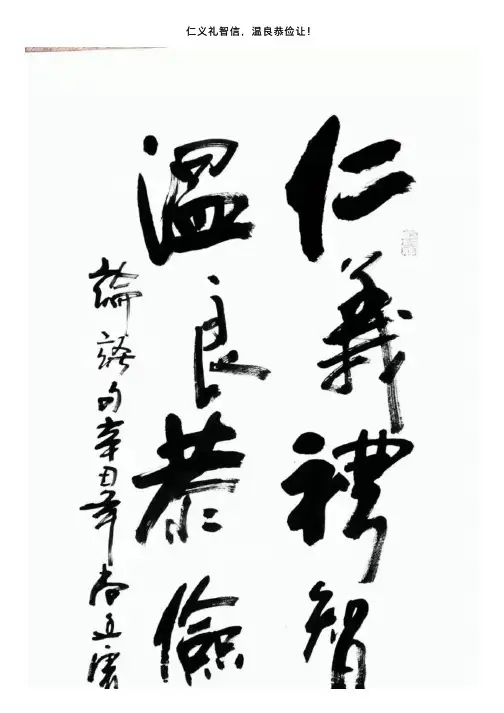 仁义礼智信，温良恭俭让！
仁義禮智
温良恭儉
論語句辛丑年春